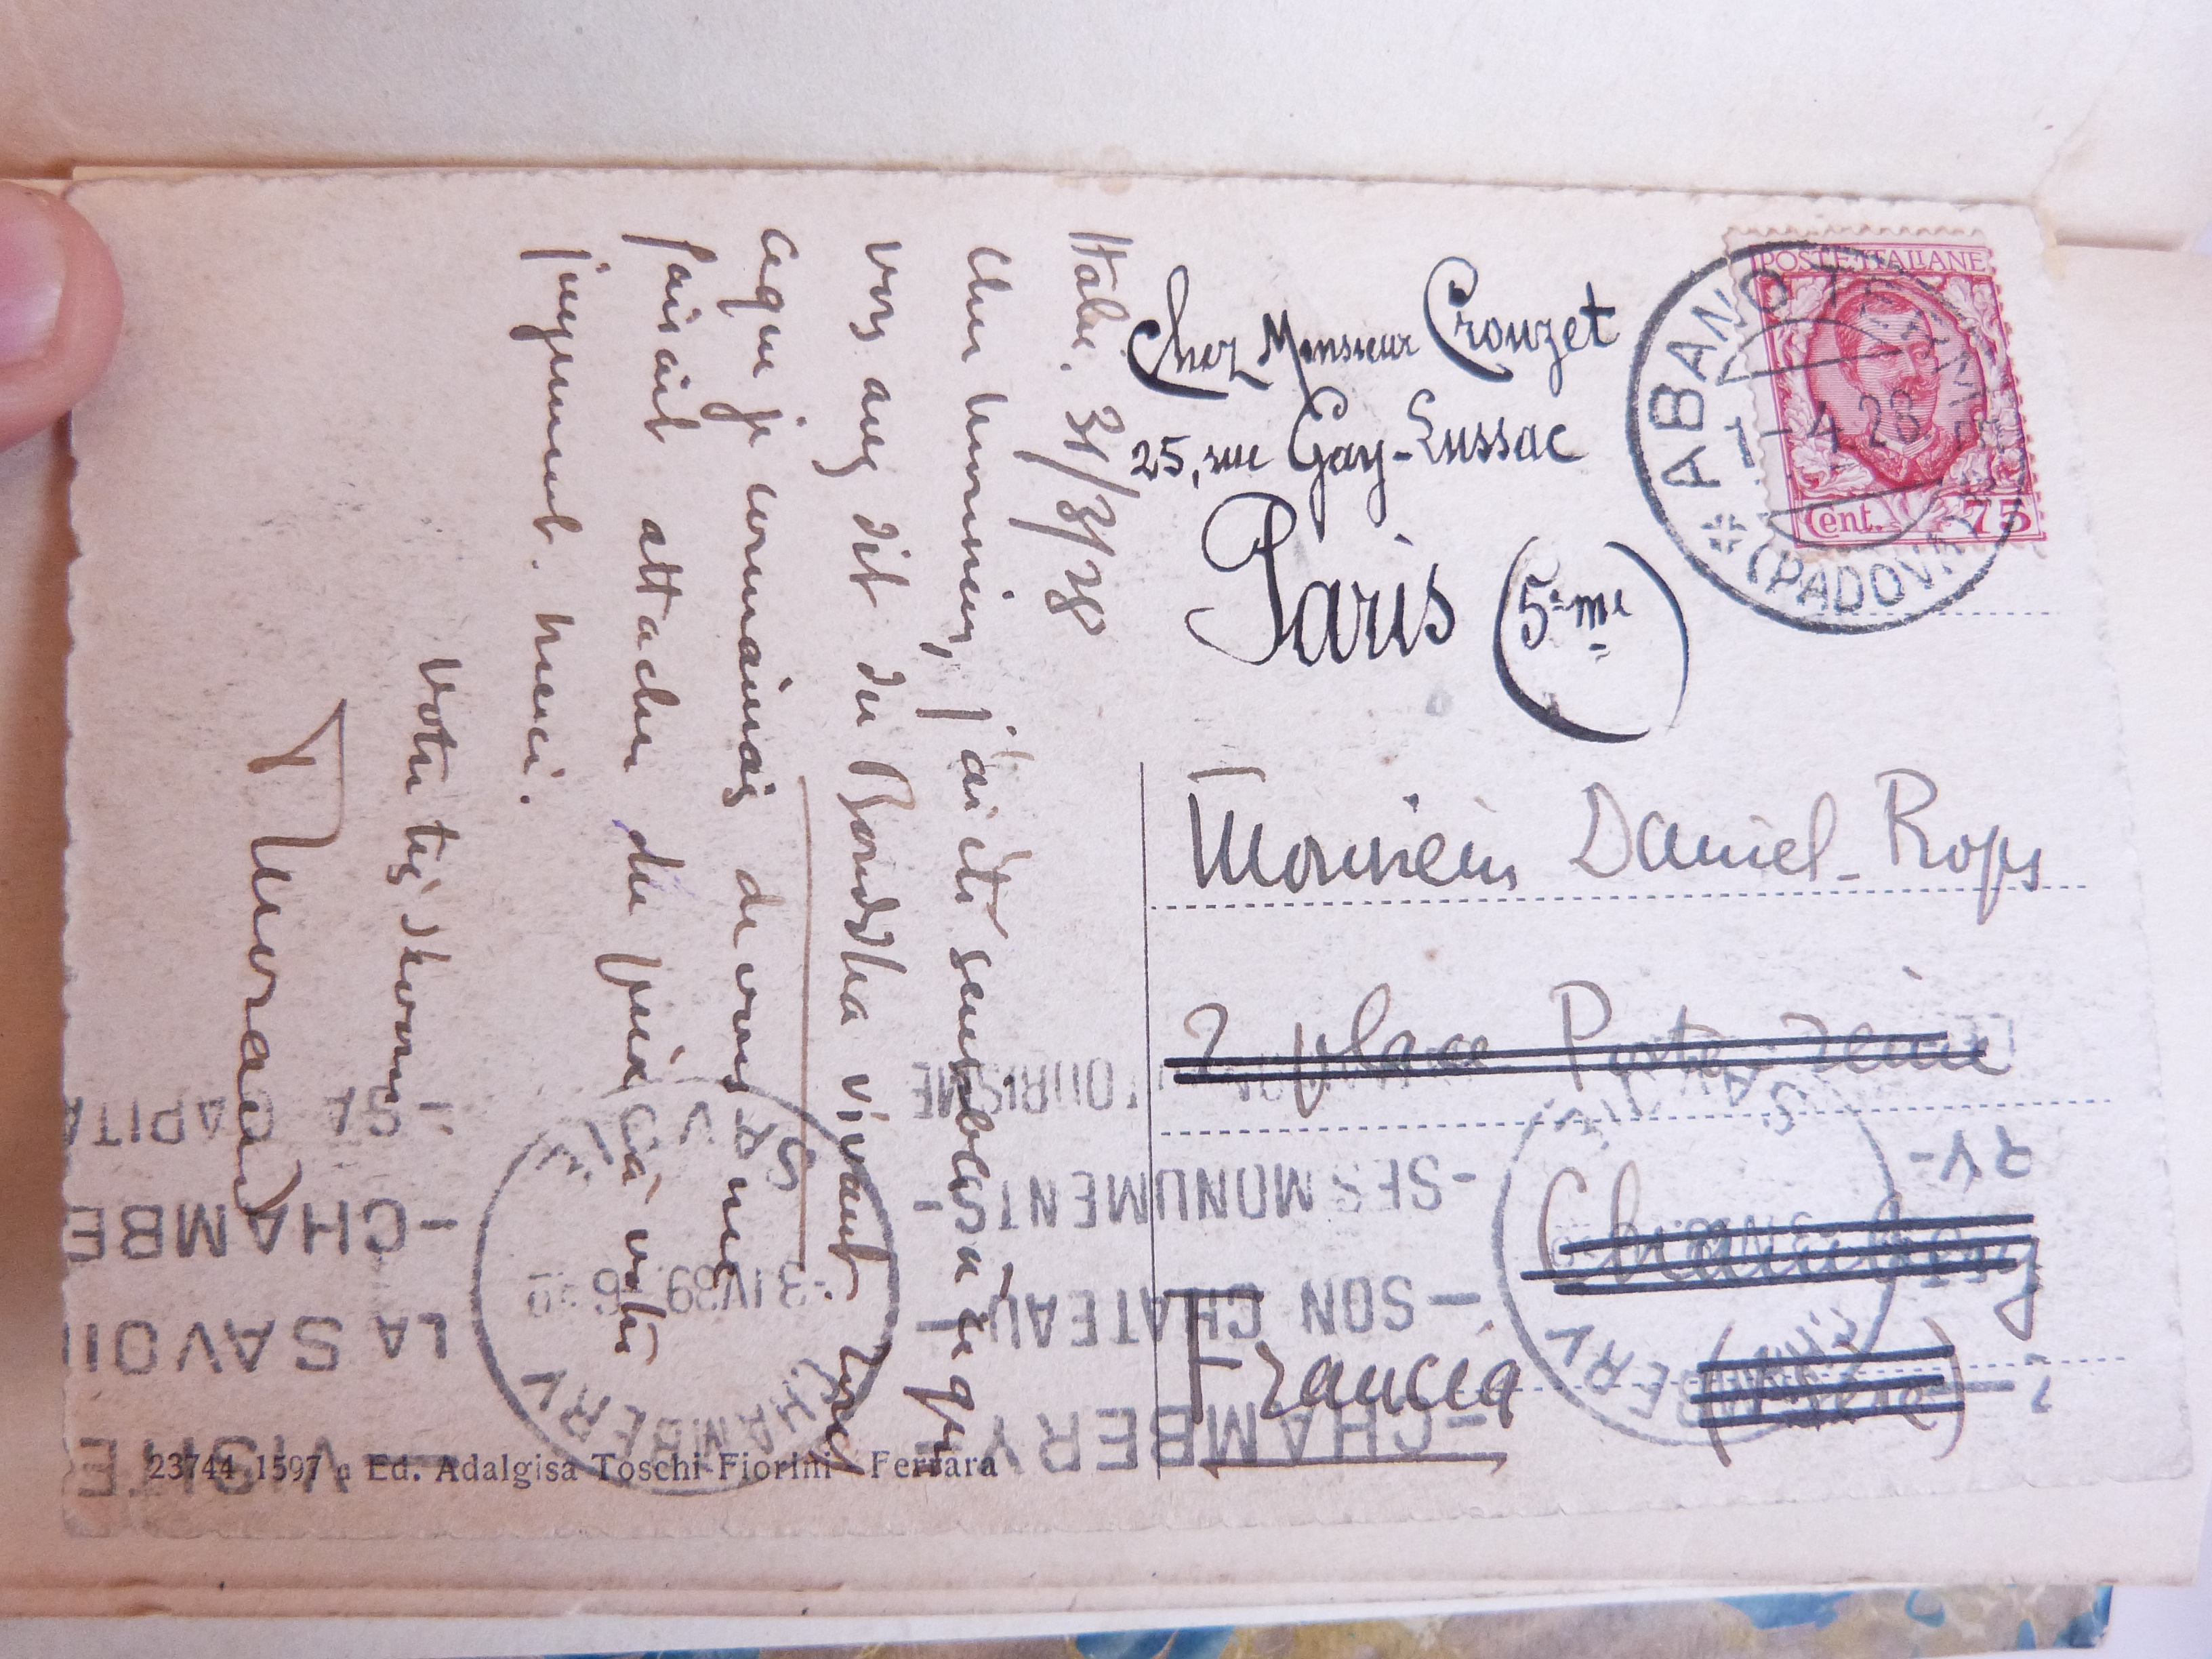 Italie. 31/3/28
Cher monsieur, j'ai été sensible à ce que
vous avez dit du Bouddha vivant. Tout
ce que je connaissais de vous me
faisait attacher du prix à votre
jugement. merci.
Votre très dévoué
Morand
Chez Monsieur Crouzet
25, rue Gay-Lussac
Paris (5-me)
Monsieur Daniel-Rops
2 place Porte-Reine
Chambéry
Francia
POSTE ITALIANE
Cent. 75
ABANO TERME
1-4 28
(PADOVA)
TOURISME
-SES MONUMENTS-
- SON CHATEAU
-CHAMBERY-
CHAMBERY
SAVOIE
CHAMBERY
-CHAMBE
LA SAVOI
VISITE
23744 1597 a Ed. Adalgisa Toschi-Fiorini - Ferrara